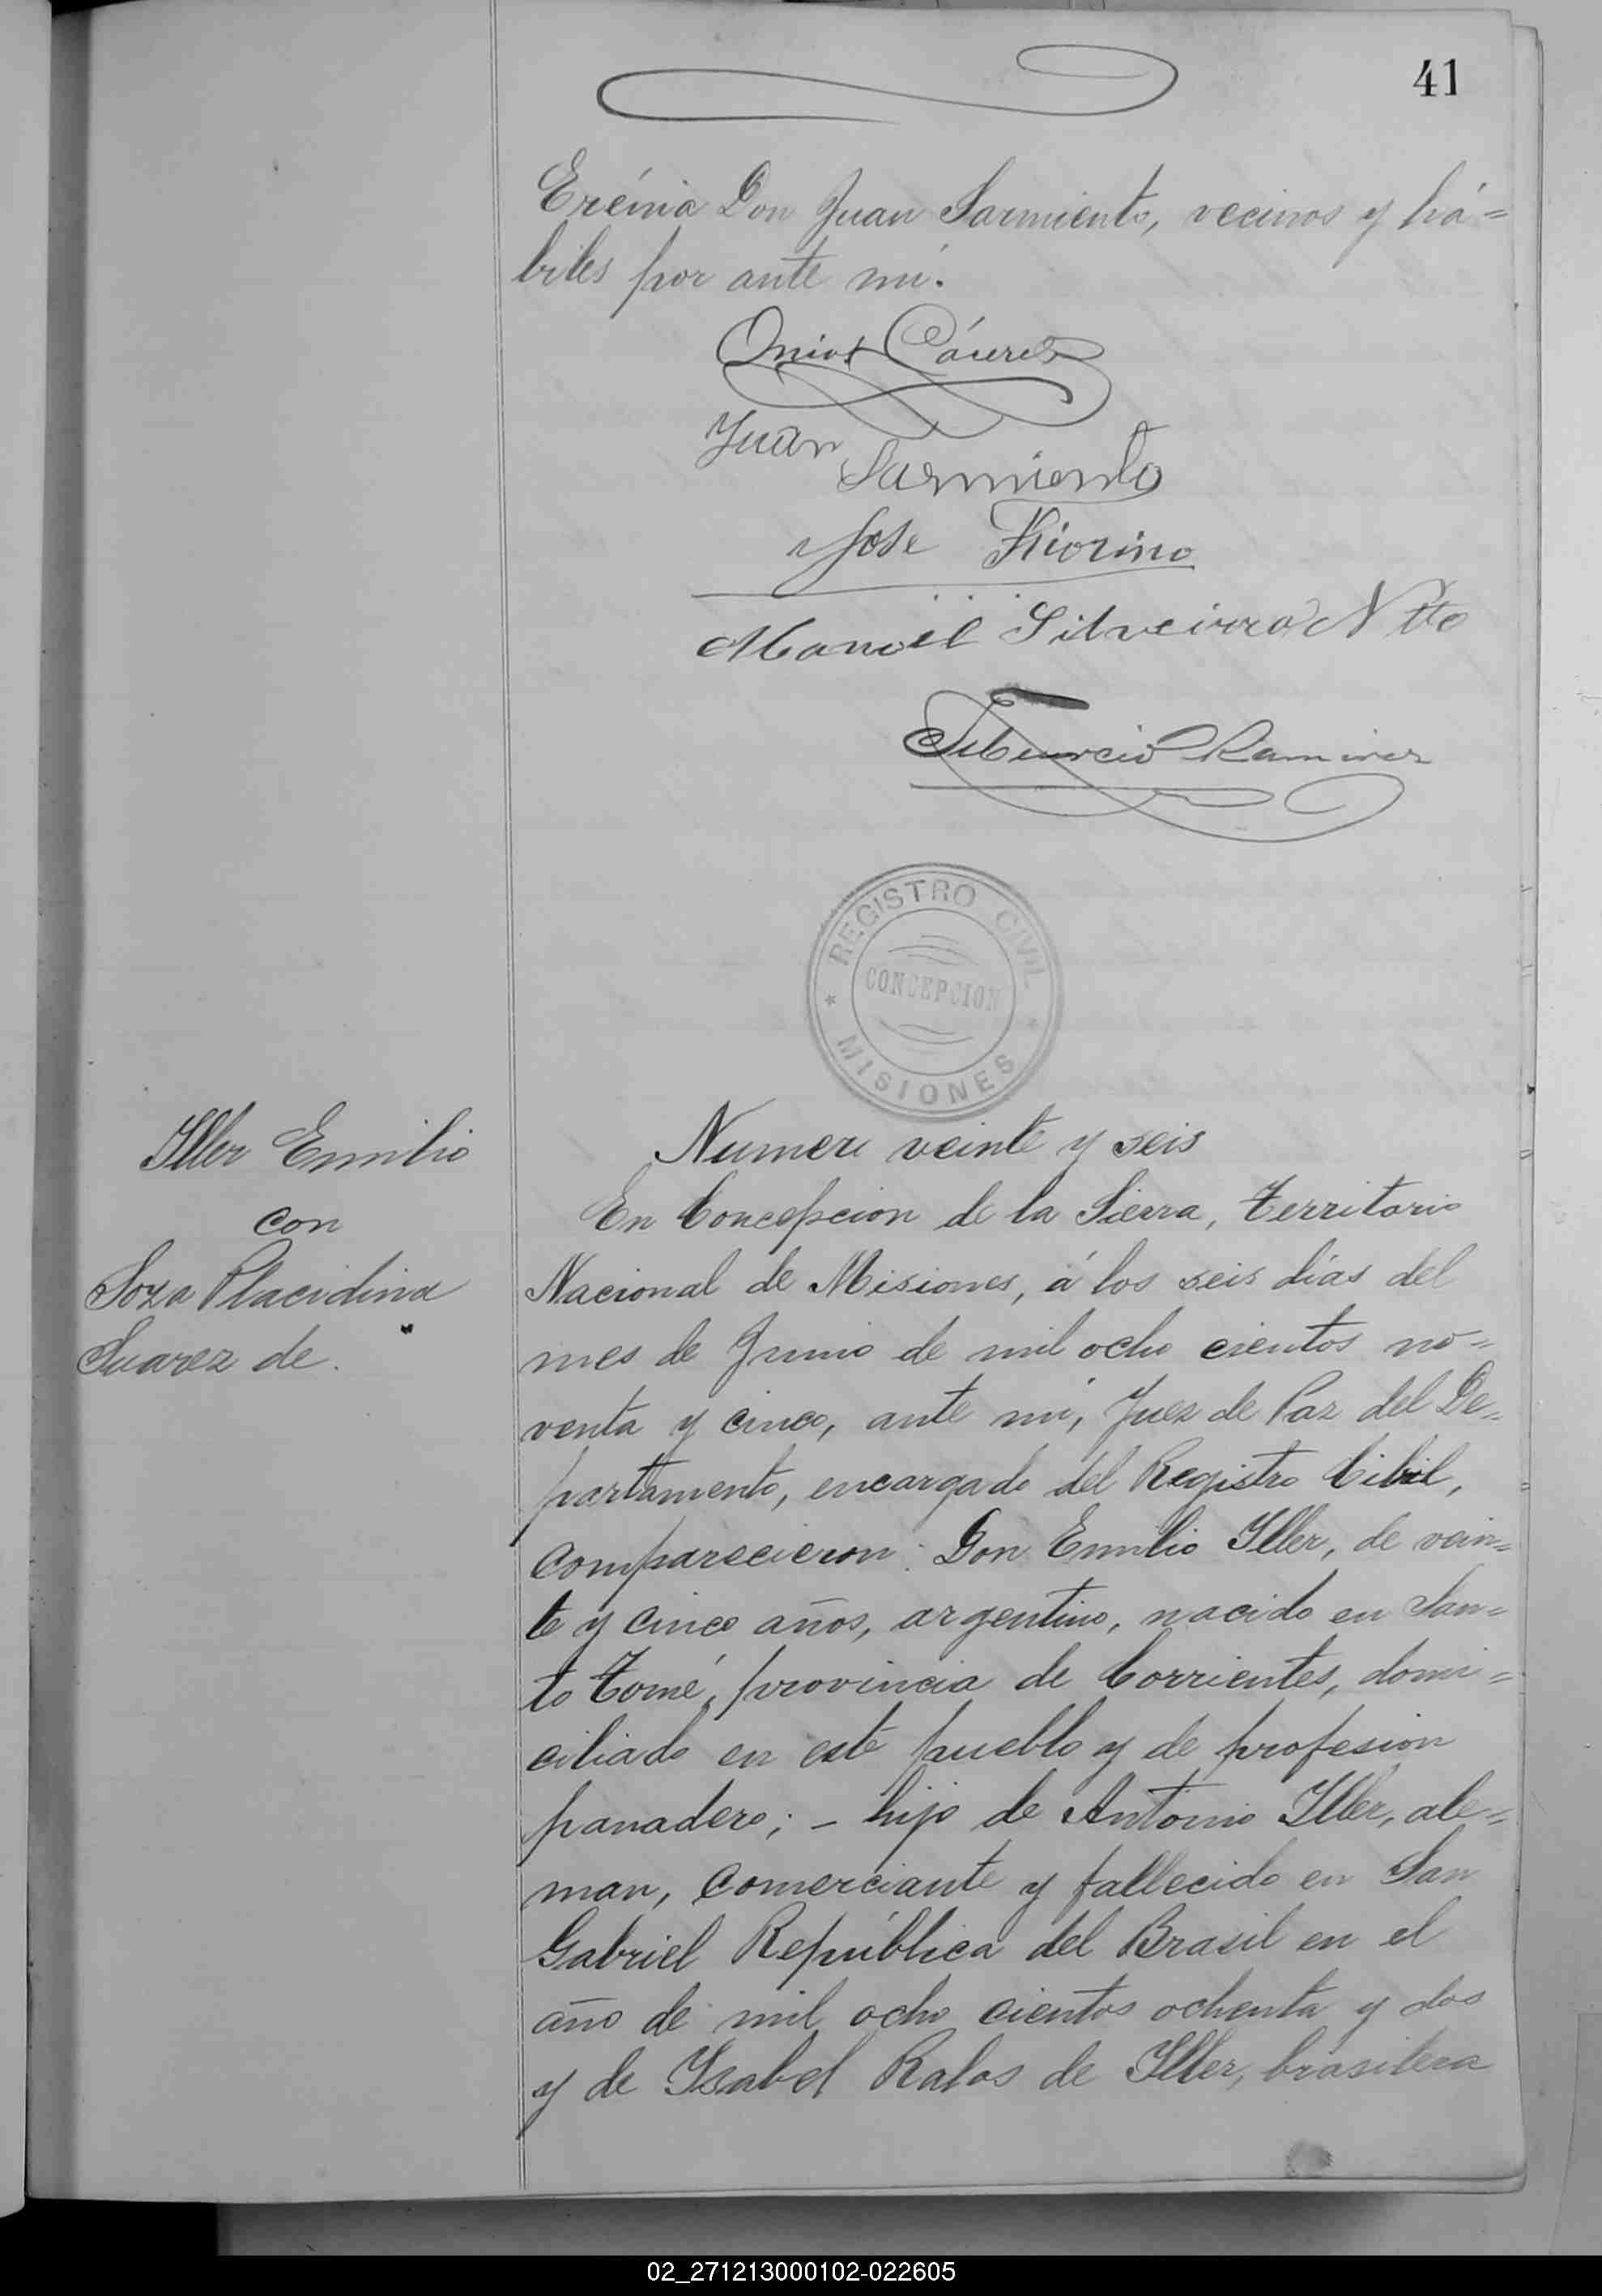 41
Erémia Don Juan Sarmiento, vecinos y há=
biles por ante mi.
Cáceres
Juan
Sarmiento
Jose Fiorino
Manoel Silveirra Ntto
Tiburcio Ramirez
REGISTRO CIVIL
CONCEPCION
MISIONES
Yller Emilio
con
Soza Placidina
Suarez de.
Numero veinte y seis
En Concepcion de la Sierra, Territorio
Nacional de Misiones, á los seis días del
mes de Junio de mil ocho cientos no=
venta y cinco, ante mi, Juez de Paz del De=
partamento, encargado del Registro Cibil,
comparecieron: Don Emilio Yller, de vein=
te y cinco años, argentino, nacido en San=
to Tomé, provincia de Corrientes, domi=
ciliado en este pueblo y de profesion
panadero; - hijo de Antonio Yller, ale=
man, comerciante y fallecido en San
Gabriel República del Brasil en el
año de mil ocho cientos ochenta y dos
y de Ysabel Ralos de Yller, brasilera
02_271213000102-022605